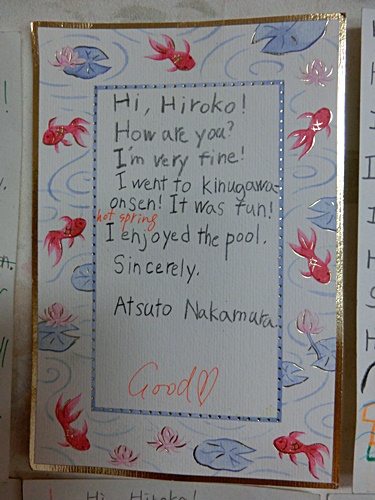 Hi, Hiroko!
How are you?
I'm very fine!
I went to kinugawa-
onsen! It was fun!
hot spring
I enjoyed the pool.
Sincerely.
Atsuto Nakamura.
Good♡
Hi, Hiroko!